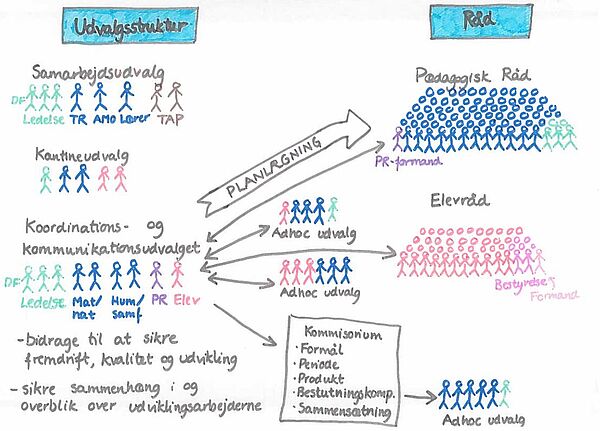 Udvalgsstruktur
Råd
Samarbejdsudvalg
DF
Ledelse TR AMO Lærer TAP
Kantineudvalg
Koordinations- og
kommunikationsudvalget
DF
Ledelse Mat/nat Hum/samf PR Elev
-bidrage til at sikre
fremdrift, kvalitet og udvikling
-sikre sammenhæng i og
overblik over udviklingsarbejderne
PLANLÆGNING
Adhoc udvalg
Adhoc udvalg
Kommisorium
·Formål
·Periode
·Produkt
·Beslutningskomp.
·Sammensætning
Pædagogisk Råd
PR-formand
Elevråd
Bestyrelse
Formand
Adhoc udvalg